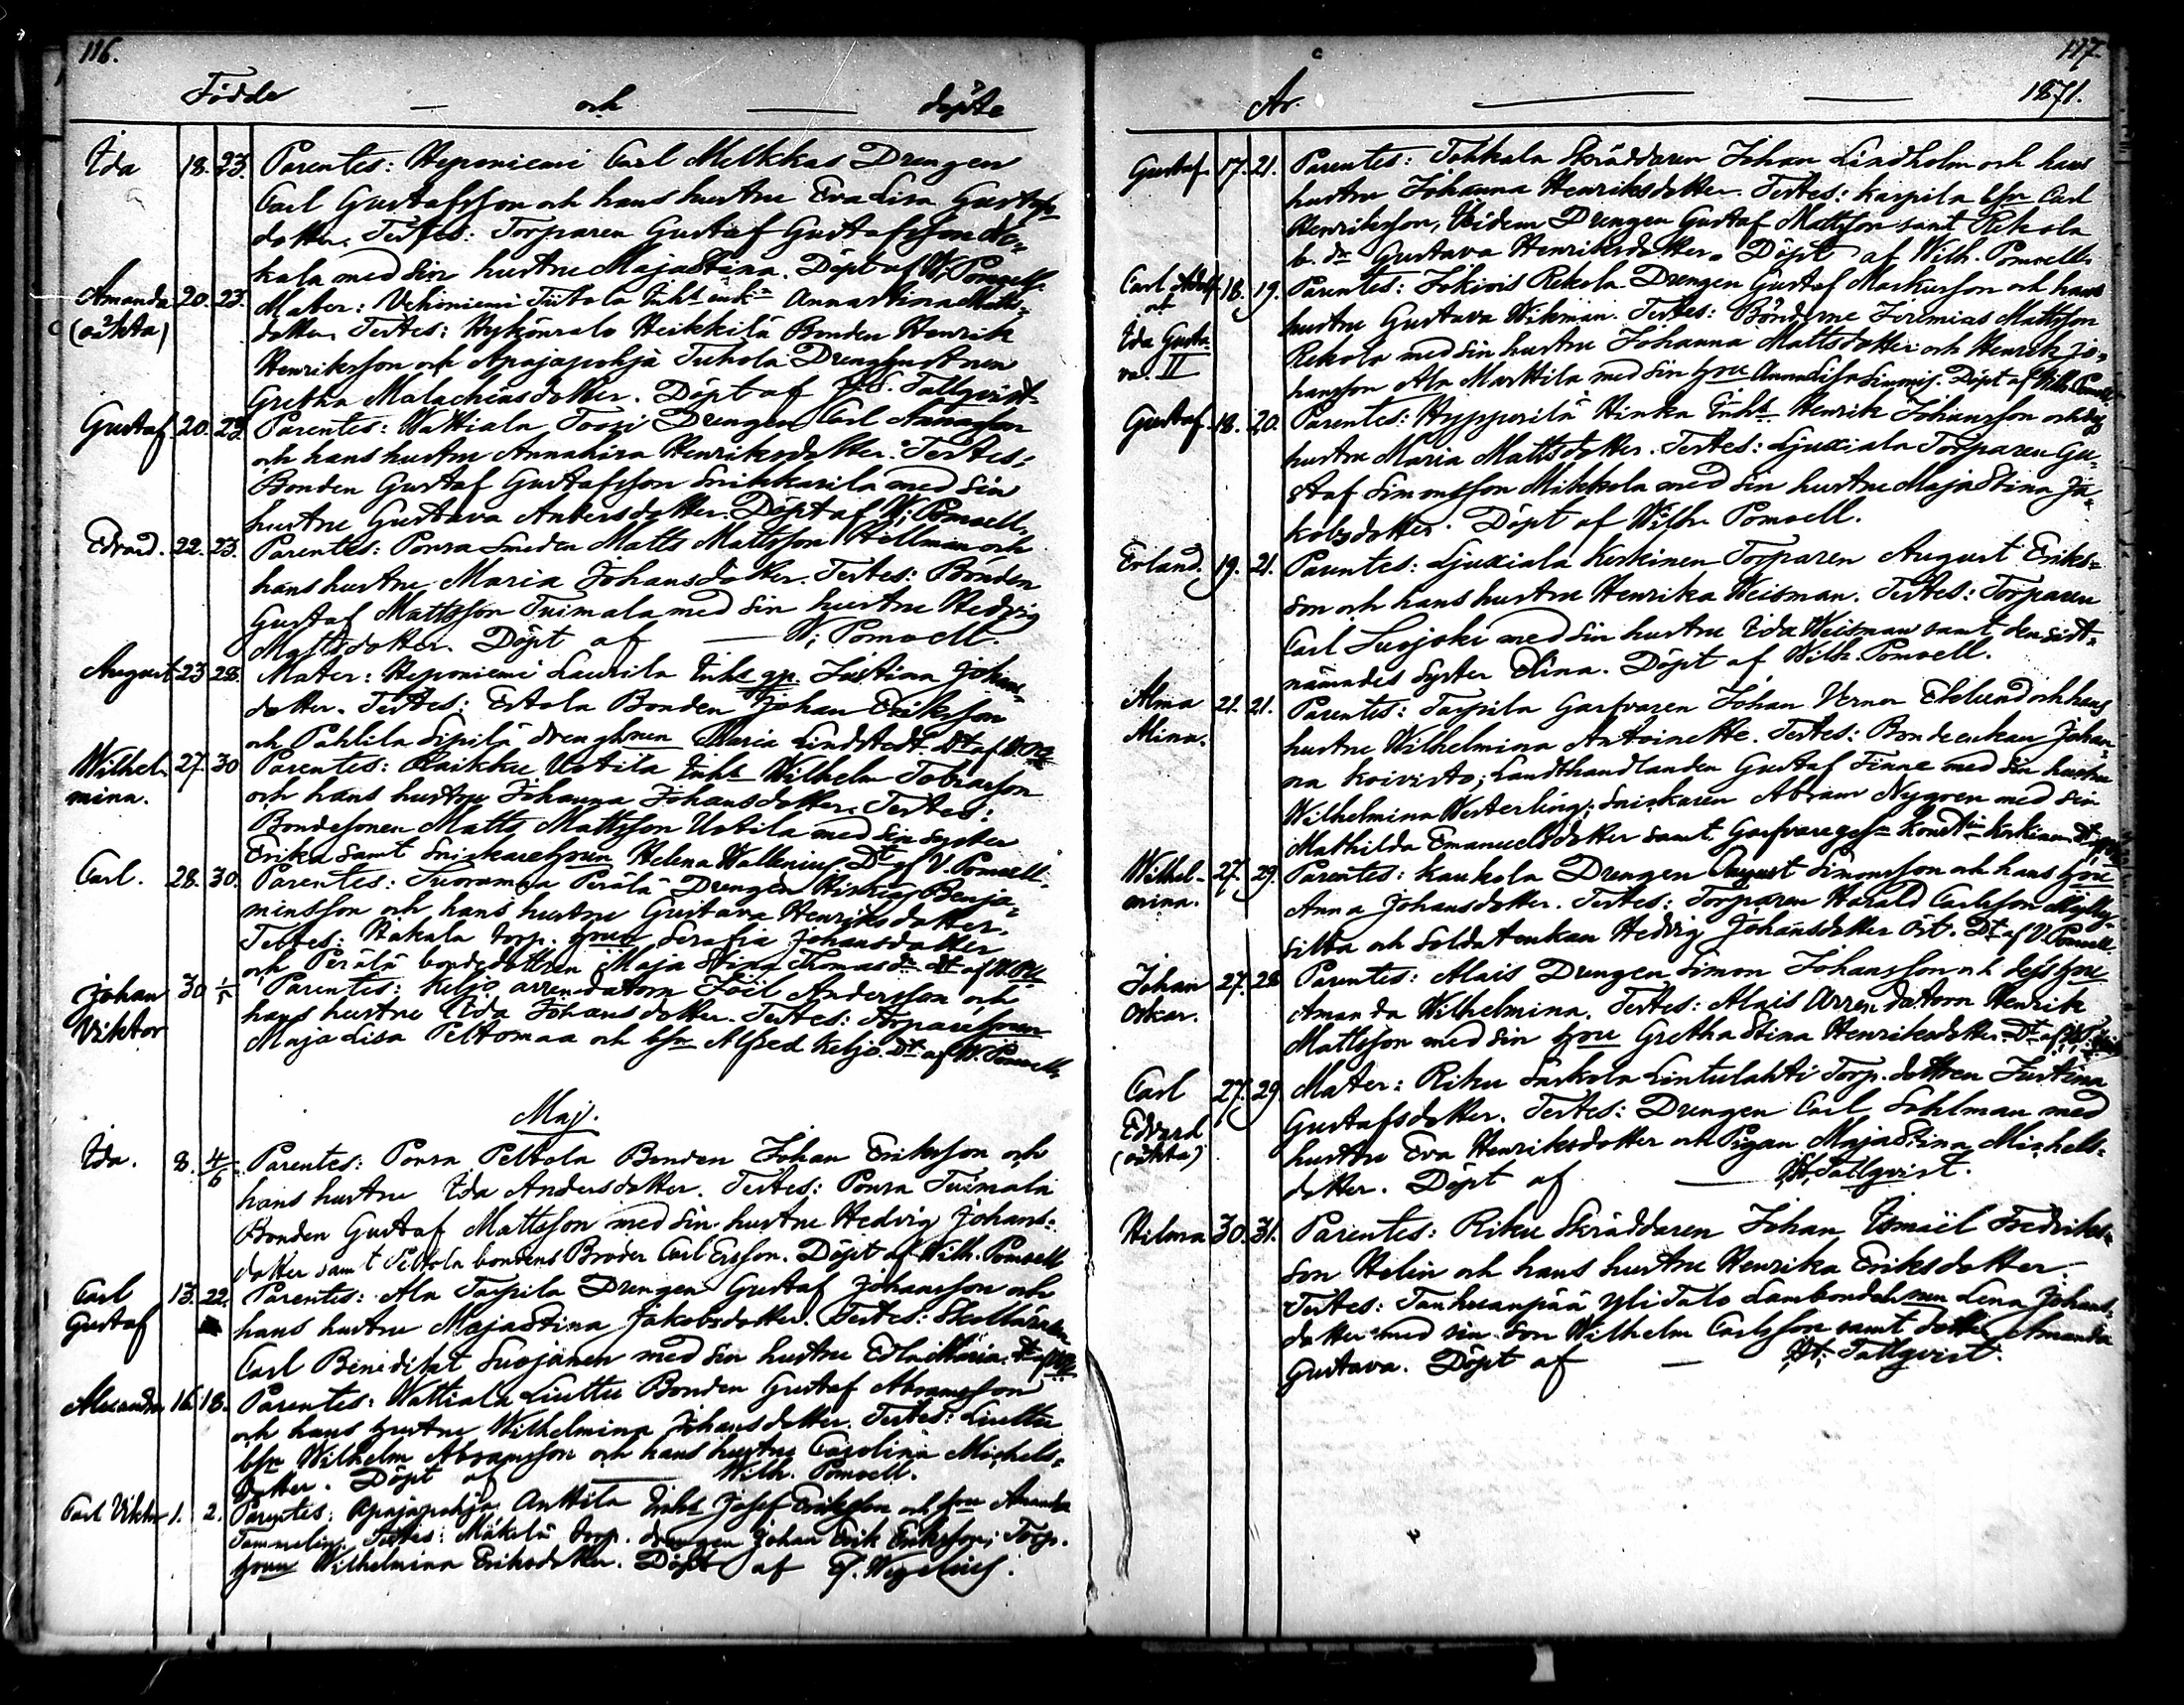 116.
Födde — och — döpte
Ida 18. 23. Parentes: Heponiemi Carl Melkkas Drengen
Carl Gustafsson och hans hustru Eva Lisa Gustafs
dotter. Testes: Torparen Gustaf Gustafsson
kala med sin hustru Maja Stina. Döpt af W. Pomoell.
Amanda 20. 23. Mater: Vehoniemi Tuitola Inhs enk. Anna Stina Matts-
(oäkta) dotter. Testes: Hykönsalo Heikkilä Bonden Henrik
Henriksson och Apajapohja Tuhola Dreng hustrun
Gretha Malachiasdotter. Döpt af Tallqvist.
Gustaf 20. 23. Parentes: Wattiala Toosi Drengen Carl
och hans hustru Annakaisa Henriksdotter. Testes:
Bonden Gustaf Gustafsson Snikkarila med sin
hustru Gustava Andersdotter. Döpt af W. Pomoell.
Edvard. 22. 23. Parentes: Ponsa Smeden Matts Mattsson Hellman och
hans hustru Maria Johansdotter. Testes: Bonden
Gustaf Mattsson Tuimala med sin hustru Hedvig
Mattsdotter. Döpt af — W. Pomoell.
August 23 28. Mater: Heponiemi Laurila Inhs qp. Justina Johans-
dotter. Testes: Ertola Bonden Johan Eriksson
och Pahlila Sipilä dreng hrun Maria Lindstedt. Dt af
Wilhel- 27. 30 Parentes: Raikku Uotila Inhs Wilhelm Tobiasson
mina. och hans hustru Johanna Johansdotter. Testes:
Bondesonen Matts Mattsson Uotila med sin syster
Erika samt Snickarehrun Helena Wallenius. Dt af V. Pomoell.
Carl. 28. 30. Parentes: Tuoramaa Perälä Drengen Benja-
minsson och hans hustru Gustava Henriksdotter.
Testes: Hakala torp. hrun Serafia Johansdotter
och Perälä bondedottren Maja Stina Thomasdr. Dt af
Johan 30 1/5 Parentes: Keljo arrendatorn Joël Andersson och
Viktor hans hustru Ida Johansdotter. Testes: Torparehrun
Maja Lisa Peltomaa och bsn Alfred Keljo. Dt af W. Pomoell.
Maj.
Ida. 8. 4/6 Parentes: Ponsa Peltola Bonden Johan Eriksson och
hans hustru Ida Andersdotter. Testes: Ponsa Tuimala
Bonden Gustaf Mattsson med sin hustru Hedvig Johans-
dotter samt Peltola bondens Broder Carl Ersson. Döpt af Wilh. Pomoell
Carl 13. 22. Parentes: Ala Tarpila Drengen Gustaf Johansson och
Gustaf hans hustru Maja Stina Jakobsdotter. Testes: Skolläraren
Carl Benedikt Suojanen med sin hustru Edla Maria. Dt af
Alexandra 16. 18. Parentes: Wattiala Liuttu Bonden Gustaf Abramsson
och hans hustru Wilhelmina Johansdotter. Testes: Liuttu
bsn Wilhelm Abramsson och hans hustru Carolina Michels-
dotter. Döpt af — Wilh. Pomoell.
Carl Viktor 1. 2. Parentes: Apajapohja Anttila Inhs Josef Eriksson och hru Amanda
Tammelin. Testes: Mäkelä torp. drengen Johan Erik Eriksson; Torp.
hrun Wilhelmina Eriksdotter. Döpt af Wegelius.
117.
År — — 1871.
Gustaf 17. 21. Parentes: Tohkala Skräddaren Johan Lindholm och hans
hustru Johanna Henriksdotter. Testes: Karpila bsn Carl
Henriksson, Drengen Gustaf Mattsson samt Rekola
b. dr Gustava Henriksdotter. Döpt af Wilh. Pomoell.
Carl Adolf 18. 19. Parentes: Jokiois Rekola Drengen Gustaf Markusson och hans
och hustru Gustava Wikman. Testes: Bönderne Jeremias Mattsson
Ida Gusta- Rekola med sin hustru Johanna Mattsdotter och Henrik Jo-
va. II hansson Ala Marttila med sin hru Annalisa Simonis. Döpt af Wilh. Pomoell
Gustaf 18. 20. Parentes: Hyppperilä Hinka Inhs Henrik Johansson och dess
hustru Maria Mattsdotter. Testes: Ljuxiala Torparen Gu-
staf Simonsson Mikkola med sin hustru Maja Stina Ja-
kobsdotter. Döpt af Wilh. Pomoell.
Erland. 19. 21. Parentes: Ljuxiala Keskinen Torparen August Eriks-
son och hans hustru Henrika Weisman. Testes: Torparen
Carl Suojoki med sin hustru Ida Weisman samt den sist-
nämndes syster Elina. Döpt af Wilh. Pomoell.
Alma 21. 21. Parentes: Tarpila Garfvaren Johan Verner Eklund och hans
Alina. hustru Wilhelmina Antoinette. Testes: Bondeenkan Johan-
na Koivisto; Landthandlanden Gustaf Finne med sin hustru
Wilhelmina Westerling; Snickaren Abram Nygren med sin
Mathilda Emanuelsdotter samt Garfvaregess
Wilhel- 27. 29. Parentes: Kaukola Drengen August Simonsson och hans hru
mina. Anna Johansdotter. Testes: Torparen Harald Carlsson Mylly-
silta och Soldatenkan Hedvig Johansdotter Öst. Dt af V. Pomoell
Johan 27. 28 Parentes: Alais Drengen Simon Johansson och dess hru
Oskar. Amanda Wilhelmina. Testes: Alais Arrendatorn Henrik
Mattsson med sin hru Gretha Stina Henriksdotter. Dt af
Carl 27. 29 Mater: Riku Sarkola Lintulahti Torp. dottren Justina
Edvard Gustafsdotter. Testes: Drengen Carl Sohlman med
(oäkta) hustru Eva Henriksdotter och Pigan Maja Stina Michels-
dotter. Döpt af — Tallqvist.
Hilma 30. 31. Parentes: Riku Skräddaren Johan Ismaël Fredriks-
son Helin och hans hustru Henrika Eriksdotter.
Testes: Tanhuanpää Yli Talo Lambondehrun Lena Johans
dotter med sin son Wilhelm Carlsson samt dotter Amanda
Gustava. Döpt af — Tallqvist.